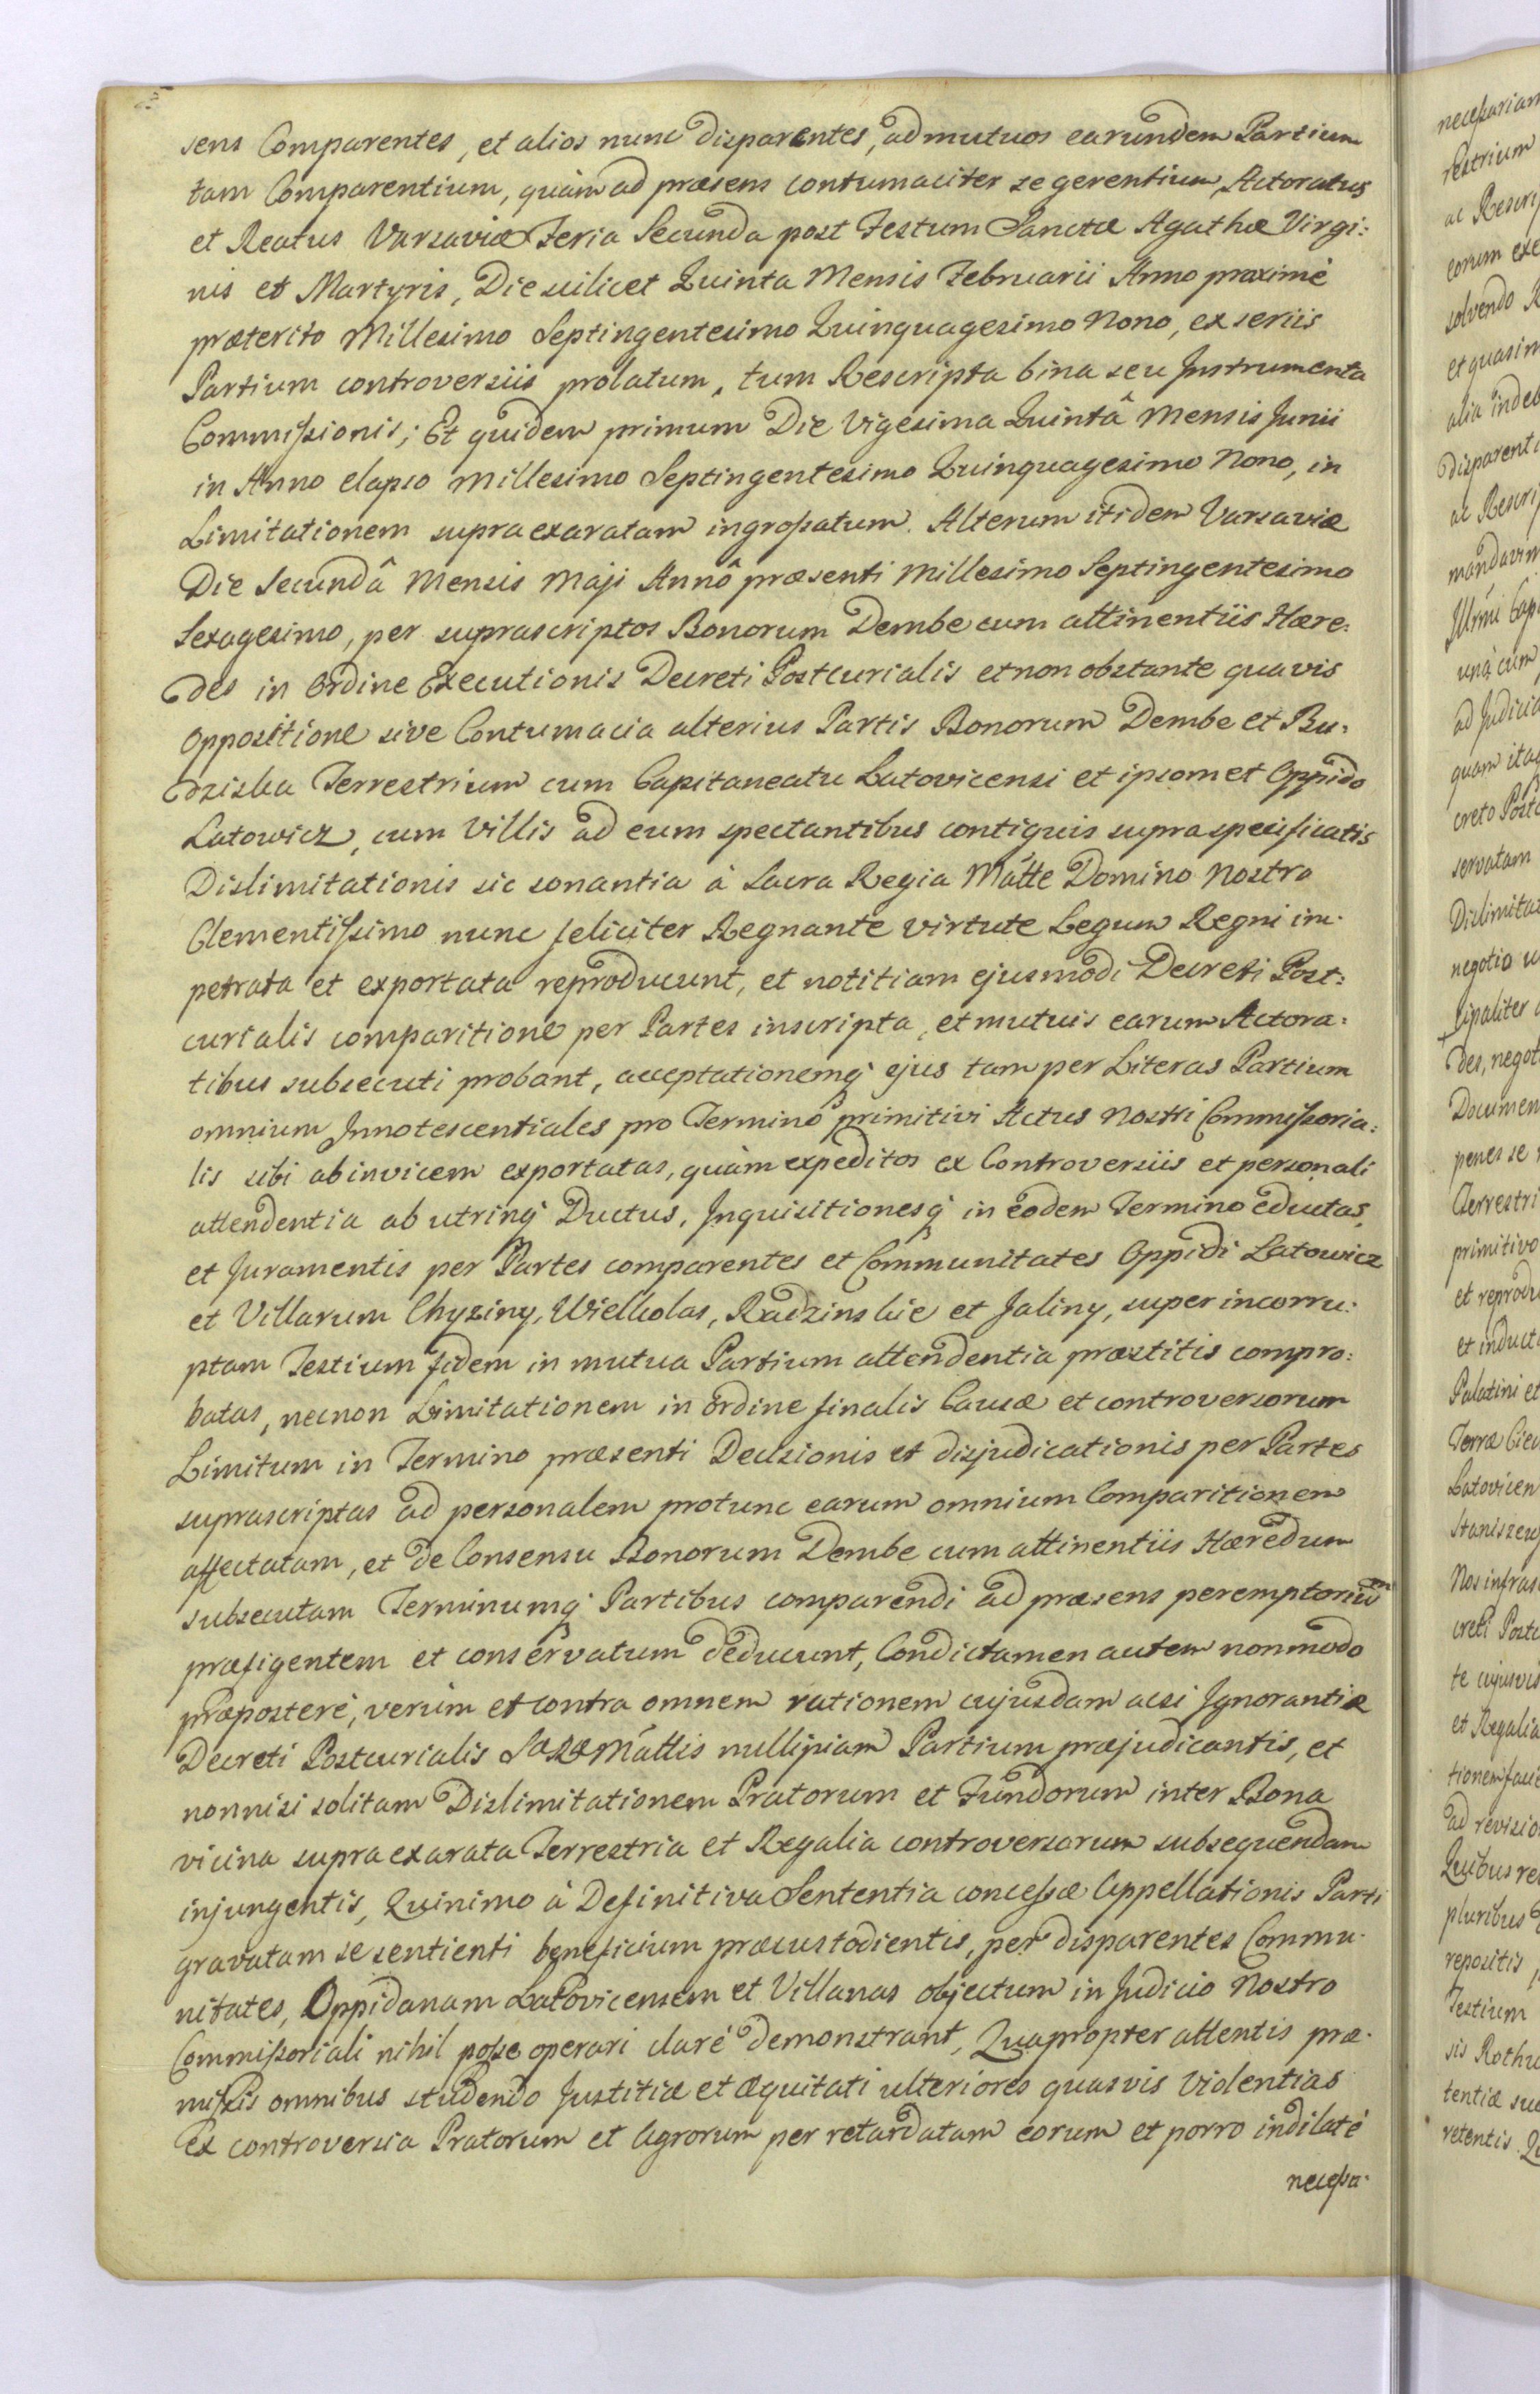 sens Comparentes, et alios nunc disparentes, ad mutuos earundem Partium
tam Comparentium, quàm ad præsens contumaciter se gerentium, Actoratus
et Reatus Varsaviæ Feria Secunda post Festum Sanctæ Agathæ Virgi:
nis et Martyris, Die scilicet Quinta Mensis Februarii Anno proximè
præterito Millesimo Septingentesimo Quinquagesimo Nono, ex seriis
Partium controversiis prolatum, tum Rescripta bina seu Instrumenta
Commissionis; Et quidem primum Die Vigesima Quintâ Mensis Junii
in Anno elapso Millesimo Septingentesimo Quinquagesimo Nono, in
Limitationem supra exaratam ingrossatum. Alterum itidem Varsaviæ
Die Secundâ Mensis Maji Annô præsenti Millesimo Septingentesimo
Sexagesimo, per suprascriptos Bonorum Dembe cum attinentiis Hære:
des in Ordine Executionis Decreti Postcurialis et non obstante quavis
Oppositione sive Contumacia alterius Partis Bonorum Dembe et Bu:
dziska Terrestrium cum Capitaneatu Latovicensi et ipsomet Oppido
Latowicz, cum Villis ad eum spectantibus contiguis supra specificatis
Dislimitationis sic sonantia à Sacra Regia Mátte Domino Nostro
Clementissimo nunc feliciter Regnante virtute Legum Regni im:
petrata et exportata reproducunt, et notitiam ejusmodi Decreti Post:
curialis comparitione per Partes inscripta, et mutuis earum Actora:
tibus subsecuti probant, acceptationemq; ejus tam per Literas Partium
omnium Innotescentiales pro Terminô primitivi Actus Nostri Commissoria:
lis sibi ab invicem exportatas, quàm expeditos ex Controversiis et personali
attendentia ab utrinq; Ductus, Inquisitionesq; in eodem Termino eductas,
et Juramentis per Partes comparentes et Communitates Oppidi Latowicz
et Villarum Chyziny, Wielkolas, Radzinskie et Jaliny, super incorru:
ptam Testium fidem in mutua Partium attendentia præstitis compro:
batas, necnon Limitationem in ordine finalis Causæ et controversorum
Limitum in Termino præsenti Decisionis et disjudicationis per Partes
suprascriptas ad personalem protunc earum omnium Comparitionem
affectatam, et de Consensu Bonorum Dembe cum attinentiis Hæredum
subsecutam Terminumq; Partibus comparendi ad præsens peremptorium
præfigentem et conservatum deducunt, Condictamen autem nonmodo
præposterè, verùm et contra omnem rationem cujusdam acsi Ignorantiæ
Decreti Postcurialis Sæ Ræ Máttis nullipiam Partium præjudicantis, et
nonnisi solitam Dislimitationem Pratorum et Fundorum inter Bona
vicina supra exarata Terrestria et Regalia controversorum subsequendam
injungentis, Quinimo à Definitiva Sententia concessæ Appellationis Parti
gravatam se sentienti beneficium præcustodientis, per disparentes Commu:
nitates, Oppidanam Latovicensem et Villanas objectum in Judicio Nostro
Commissoriali nihil posse operari clarè demonstrant, Quapropter attentis præ:
missis omnibus studendo Justitiæ et æquitati ulteriores quasvis Violentias
Ex controversia Pratorum et Agrorum per retardatam eorum et porro indilatè
necessa:
necessariam
restrium
ac Rescrip
eorum exe
solvendo
et quasim
alia indeb
disparenti
ac Rescrip
mandavim
Illmi Cap
unà cum
ad Judicia
quam itaq
creto Postc
servatam
Dislimita
negotio
cipaliter
des, negot
Documen
penes se
Terrestri
primitivo
et reprodu
et inducti
Palatini et
Terræ
Latovicen
Staniszew
Nos infras
creti Postc
te cujusvis
et Regalia
tionem faci
ad revisio
Quibus re
pluribus
repositis
Testium
sis Rothu
tentiæ suæ
retentis